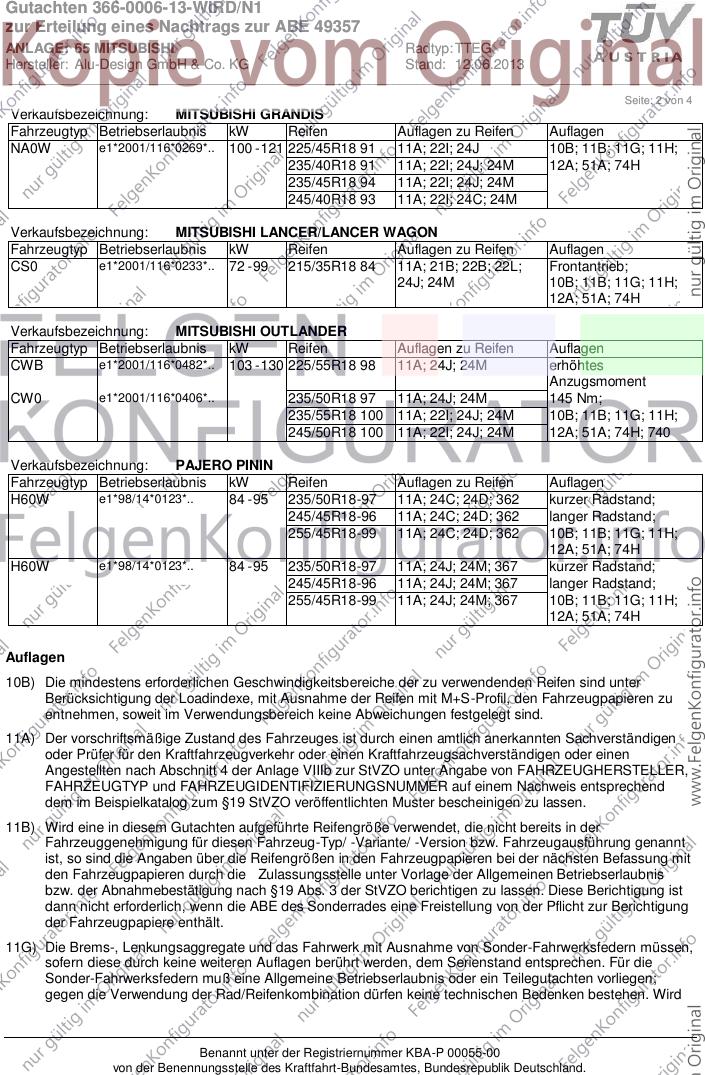 Gutachten 366-0006-13-WIRD/N1
zur Erteilung eines Nachtrags zur ABE 49357
ANLAGE: 65 MITSUBISHI Radtyp: TTEG
Hersteller: Alu-Design GmbH & Co. KG Stand: 12.06.2013
TÜV
AUSTRIA
Kopie vom Original
Seite: 2 von 4
Verkaufsbezeichnung: MITSUBISHI GRANDIS
Fahrzeugtyp Betriebserlaubnis kW Reifen Auflagen zu Reifen Auflagen
NA0W e1*2001/116*0269*.. 100 -121 225/45R18 91 11A; 22I; 24J 10B; 11B; 11G; 11H;
235/40R18 91 11A; 22I; 24J; 24M 12A; 51A; 74H
235/45R18 94 11A; 22I; 24J; 24M
245/40R18 93 11A; 22I; 24C; 24M
Verkaufsbezeichnung: MITSUBISHI LANCER/LANCER WAGON
Fahrzeugtyp Betriebserlaubnis kW Reifen Auflagen zu Reifen Auflagen
CS0 e1*2001/116*0233*.. 72 -99 215/35R18 84 11A; 21B; 22B; 22L; Frontantrieb;
24J; 24M 10B; 11B; 11G; 11H;
12A; 51A; 74H
Verkaufsbezeichnung: MITSUBISHI OUTLANDER
Fahrzeugtyp Betriebserlaubnis kW Reifen Auflagen zu Reifen Auflagen
CWB e1*2001/116*0482*.. 103 -130 225/55R18 98 11A; 24J; 24M erhöhtes
Anzugsmoment
CW0 e1*2001/116*0406*.. 235/50R18 97 11A; 24J; 24M 145 Nm;
235/55R18 100 11A; 22I; 24J; 24M 10B; 11B; 11G; 11H;
245/50R18 100 11A; 22I; 24J; 24M 12A; 51A; 74H; 740
Verkaufsbezeichnung: PAJERO PININ
Fahrzeugtyp Betriebserlaubnis kW Reifen Auflagen zu Reifen Auflagen
H60W e1*98/14*0123*.. 84 -95 235/50R18-97 11A; 24C; 24D; 362 kurzer Radstand;
245/45R18-96 11A; 24C; 24D; 362 langer Radstand;
255/45R18-99 11A; 24C; 24D; 362 10B; 11B; 11G; 11H;
12A; 51A; 74H
H60W e1*98/14*0123*.. 84 -95 235/50R18-97 11A; 24J; 24M; 367 kurzer Radstand;
245/45R18-96 11A; 24J; 24M; 367 langer Radstand;
255/45R18-99 11A; 24J; 24M; 367 10B; 11B; 11G; 11H;
12A; 51A; 74H
FELGEN
KONFIGURATOR
FelgenKonfigurator.info
Auflagen
10B) Die mindestens erforderlichen Geschwindigkeitsbereiche der zu verwendenden Reifen sind unter
Berücksichtigung der Loadindexe, mit Ausnahme der Reifen mit M+S-Profil, den Fahrzeugpapieren zu
entnehmen, soweit im Verwendungsbereich keine Abweichungen festgelegt sind.
11A) Der vorschriftsmäßige Zustand des Fahrzeuges ist durch einen amtlich anerkannten Sachverständigen
oder Prüfer für den Kraftfahrzeugverkehr oder einen Kraftfahrzeugsachverständigen oder einen
Angestellten nach Abschnitt 4 der Anlage VIIIb zur StVZO unter Angabe von FAHRZEUGHERSTELLER,
FAHRZEUGTYP und FAHRZEUGIDENTIFIZIERUNGSNUMMER auf einem Nachweis entsprechend
dem im Beispielkatalog zum §19 StVZO veröffentlichten Muster bescheinigen zu lassen.
11B) Wird eine in diesem Gutachten aufgeführte Reifengröße verwendet, die nicht bereits in der
Fahrzeuggenehmigung für diesen Fahrzeug-Typ/ -Variante/ -Version bzw. Fahrzeugausführung genannt
ist, so sind die Angaben über die Reifengrößen in den Fahrzeugpapieren bei der nächsten Befassung mit
den Fahrzeugpapieren durch die Zulassungsstelle unter Vorlage der Allgemeinen Betriebserlaubnis
bzw. der Abnahmebestätigung nach §19 Abs. 3 der StVZO berichtigen zu lassen. Diese Berichtigung ist
dann nicht erforderlich, wenn die ABE des Sonderrades eine Freistellung von der Pflicht zur Berichtigung
der Fahrzeugpapiere enthält.
11G) Die Brems-, Lenkungsaggregate und das Fahrwerk mit Ausnahme von Sonder-Fahrwerksfedern müssen,
sofern diese durch keine weiteren Auflagen berührt werden, dem Serienstand entsprechen. Für die
Sonder-Fahrwerksfedern muß eine Allgemeine Betriebserlaubnis oder ein Teilegutachten vorliegen;
gegen die Verwendung der Rad/Reifenkombination dürfen keine technischen Bedenken bestehen. Wird
Benannt unter der Registriernummer KBA-P 00055-00
von der Benennungsstelle des Kraftfahrt-Bundesamtes, Bundesrepublik Deutschland.
nur gültig im Original
www.FelgenKonfigurator.info